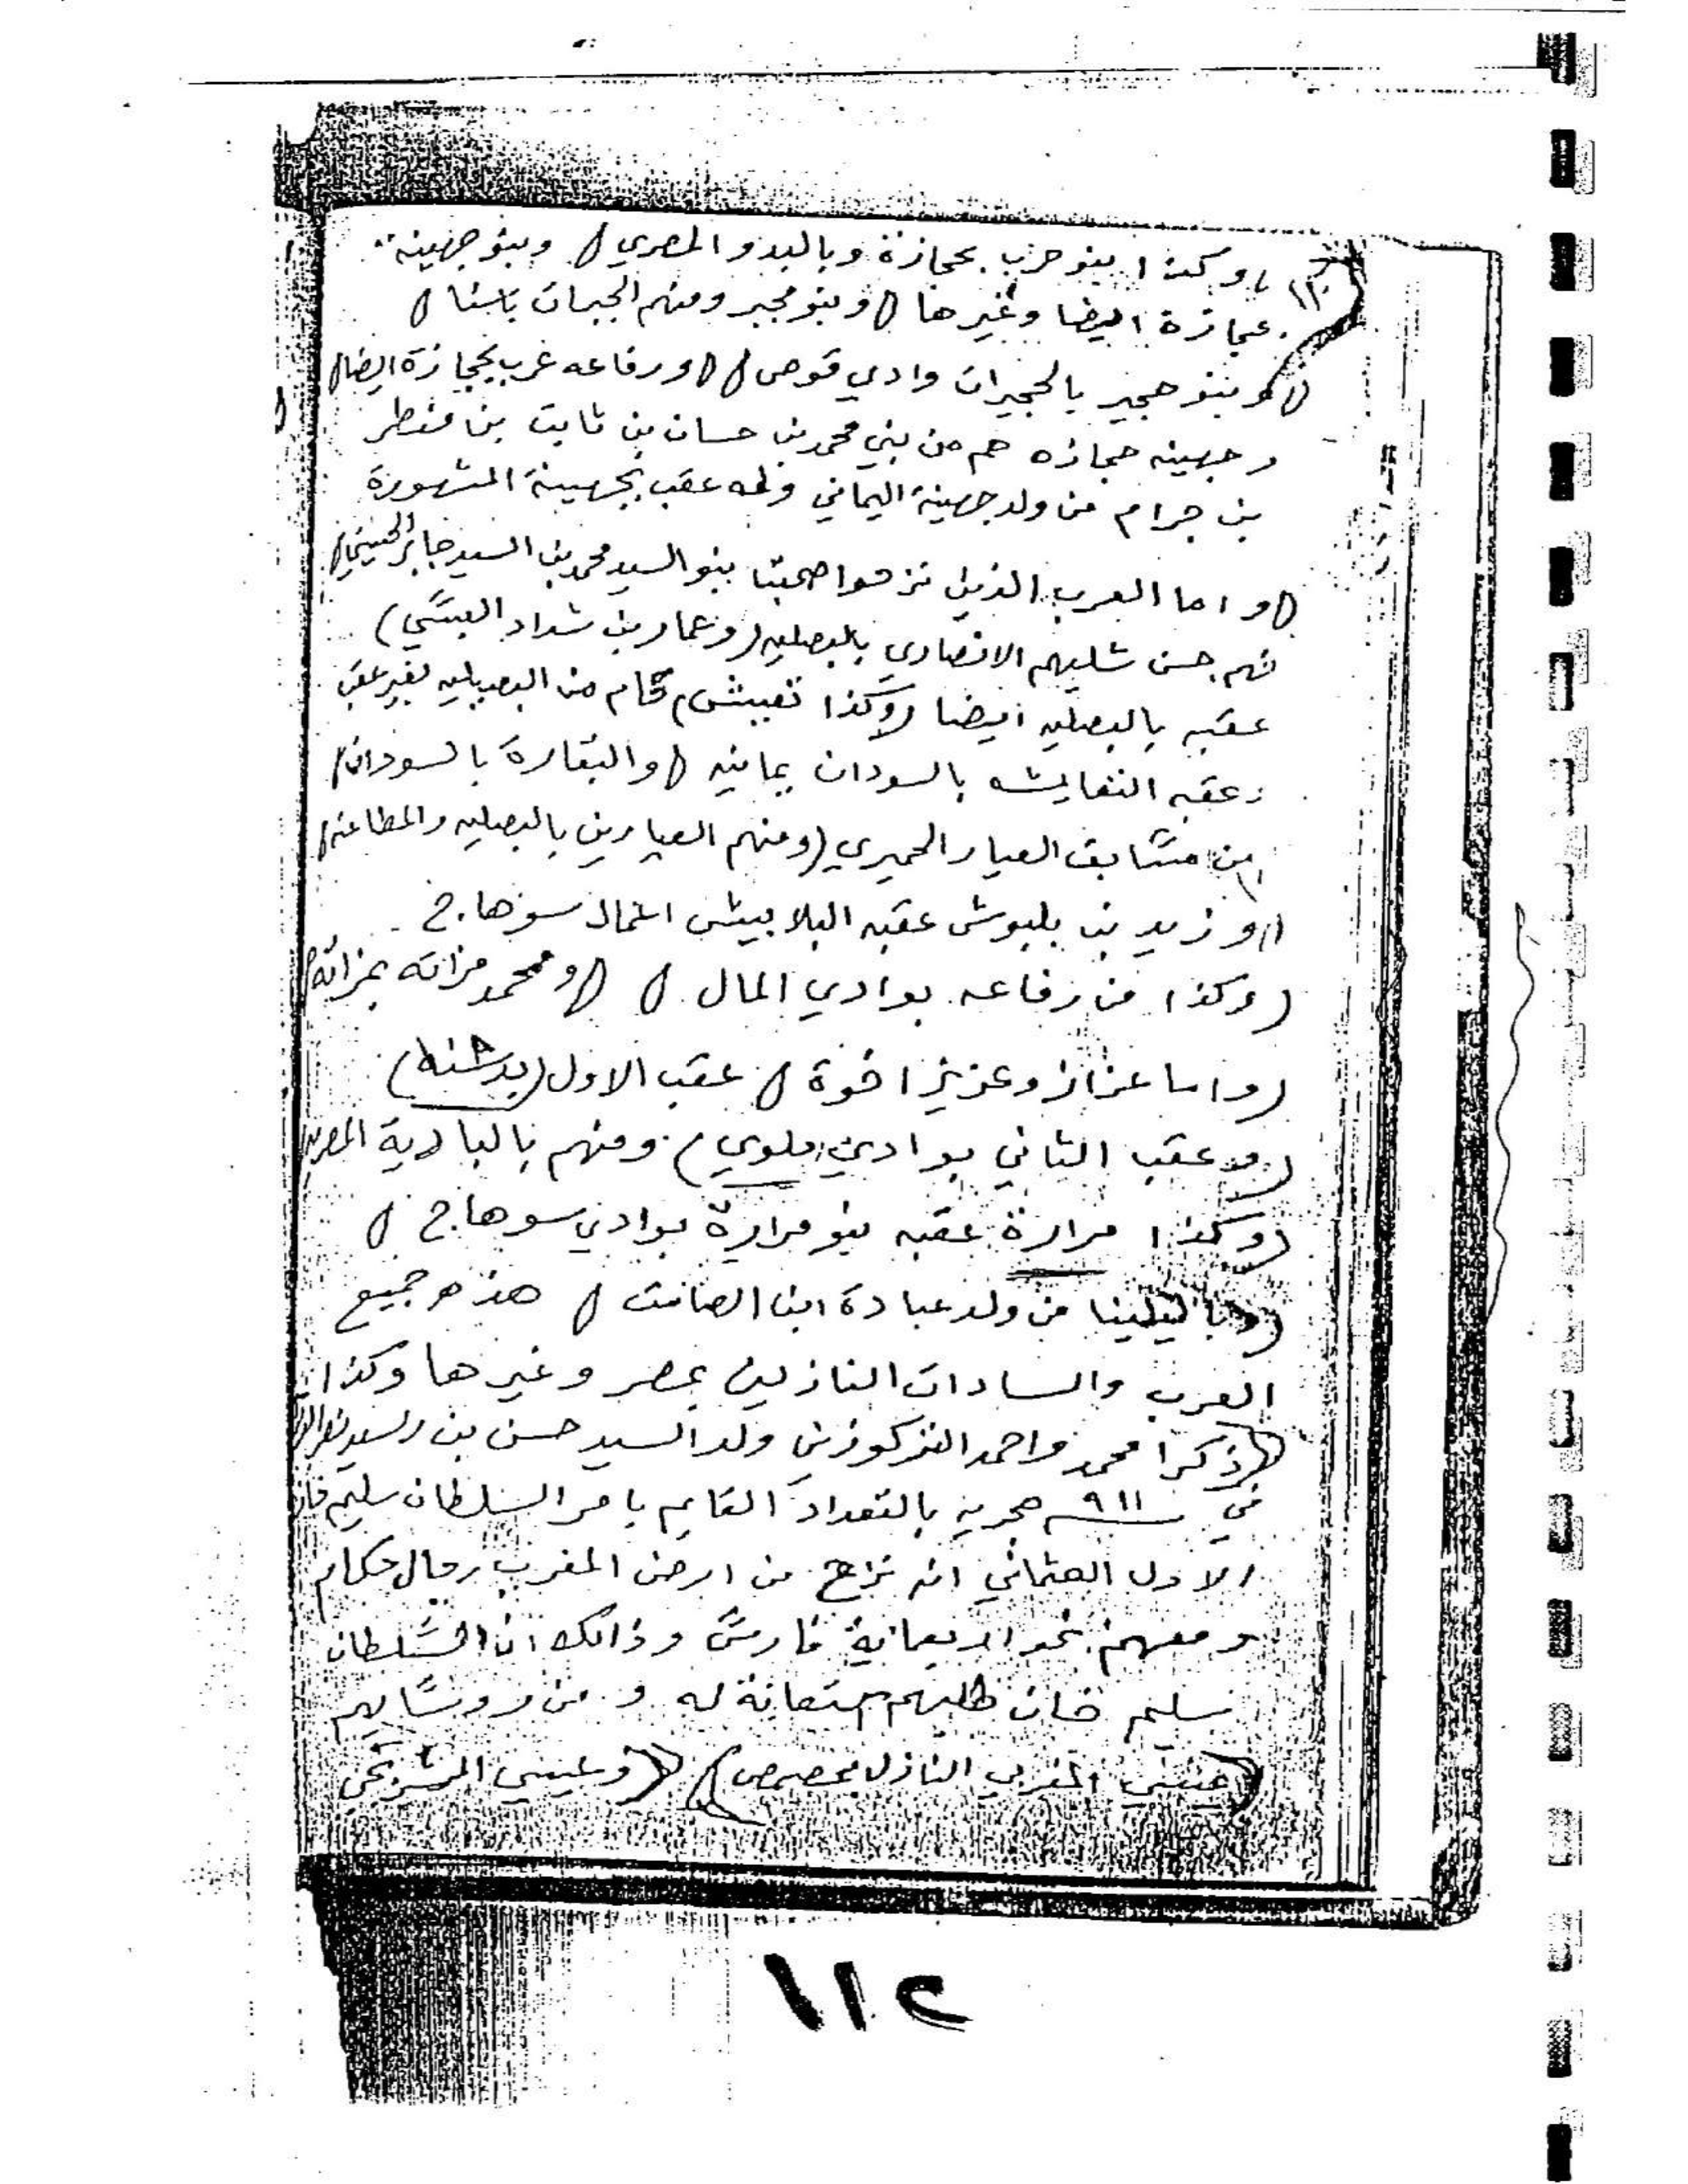 وكذا بنو حرب بحجازة وبالبدو المصري / وبنو جهينه
١١٢
عجازة ايضا وغيرها / وبنو مجبر ومنهم الجبرات باسنا /
وبنو حجير بالحجيرات وادي قوص / ورفاعه غرب بحجازة ايضا /
وجهينه حجازه هم من بني محمد بن حسان بن ثابت بن
بن حرام من ولد جهينة اليماني وله عقب بجهينة المشهورة
/ واما العرب الذين نزحوا صحبتا بنو السيد محمد بن السيد جابر الحسيني /
فهم حسن شليهم الانصاري بالبصليه (وعمار بن شداد العبسي)
عقبه بالبصليه ايضا (وكذا نفيش) قام من البصيليه لغير عقب
وعقبه النفايشه بالسودان يمانيه / والبقارة بالسودان /
من العيار الحميري (ومنهم العيارين بالبصليه والمطاعنه /
/ وزيد بن بلبوش عقبه البلابيش اعمال سوهاج
(وكذا من رفاعه بوادي المال / / ومحمد مزاته بمزاته /
(واما عزاز وعزيز اخوة / عقب الاول (بدشنه)
(وعقب الثاني بوادي ملوي) ومنهم بالبادية المصريه
(وكذا مرارة عقبه بنو مرارة بوادي سوهاج /
من ولد عبادة ابن الصامت / هذه جميع
العرب والسادات النازلين بمصر وغيرها وكذا
/ ذكرا محمد واحمد المذكورين ولد السيد حسن بن السيد
في ٩١١ هجريه بالتعداد القايم بامر السلطان سليم خان
الاول العثماني انه نزح من ارض المغرب رجال حكام
ومعهم نحو اربعماية فارس وذالك ان السلطان
سليم خان طلبهم استعانة له ومن روسايهم
المغربي النازل / (وعيسي
١١٢